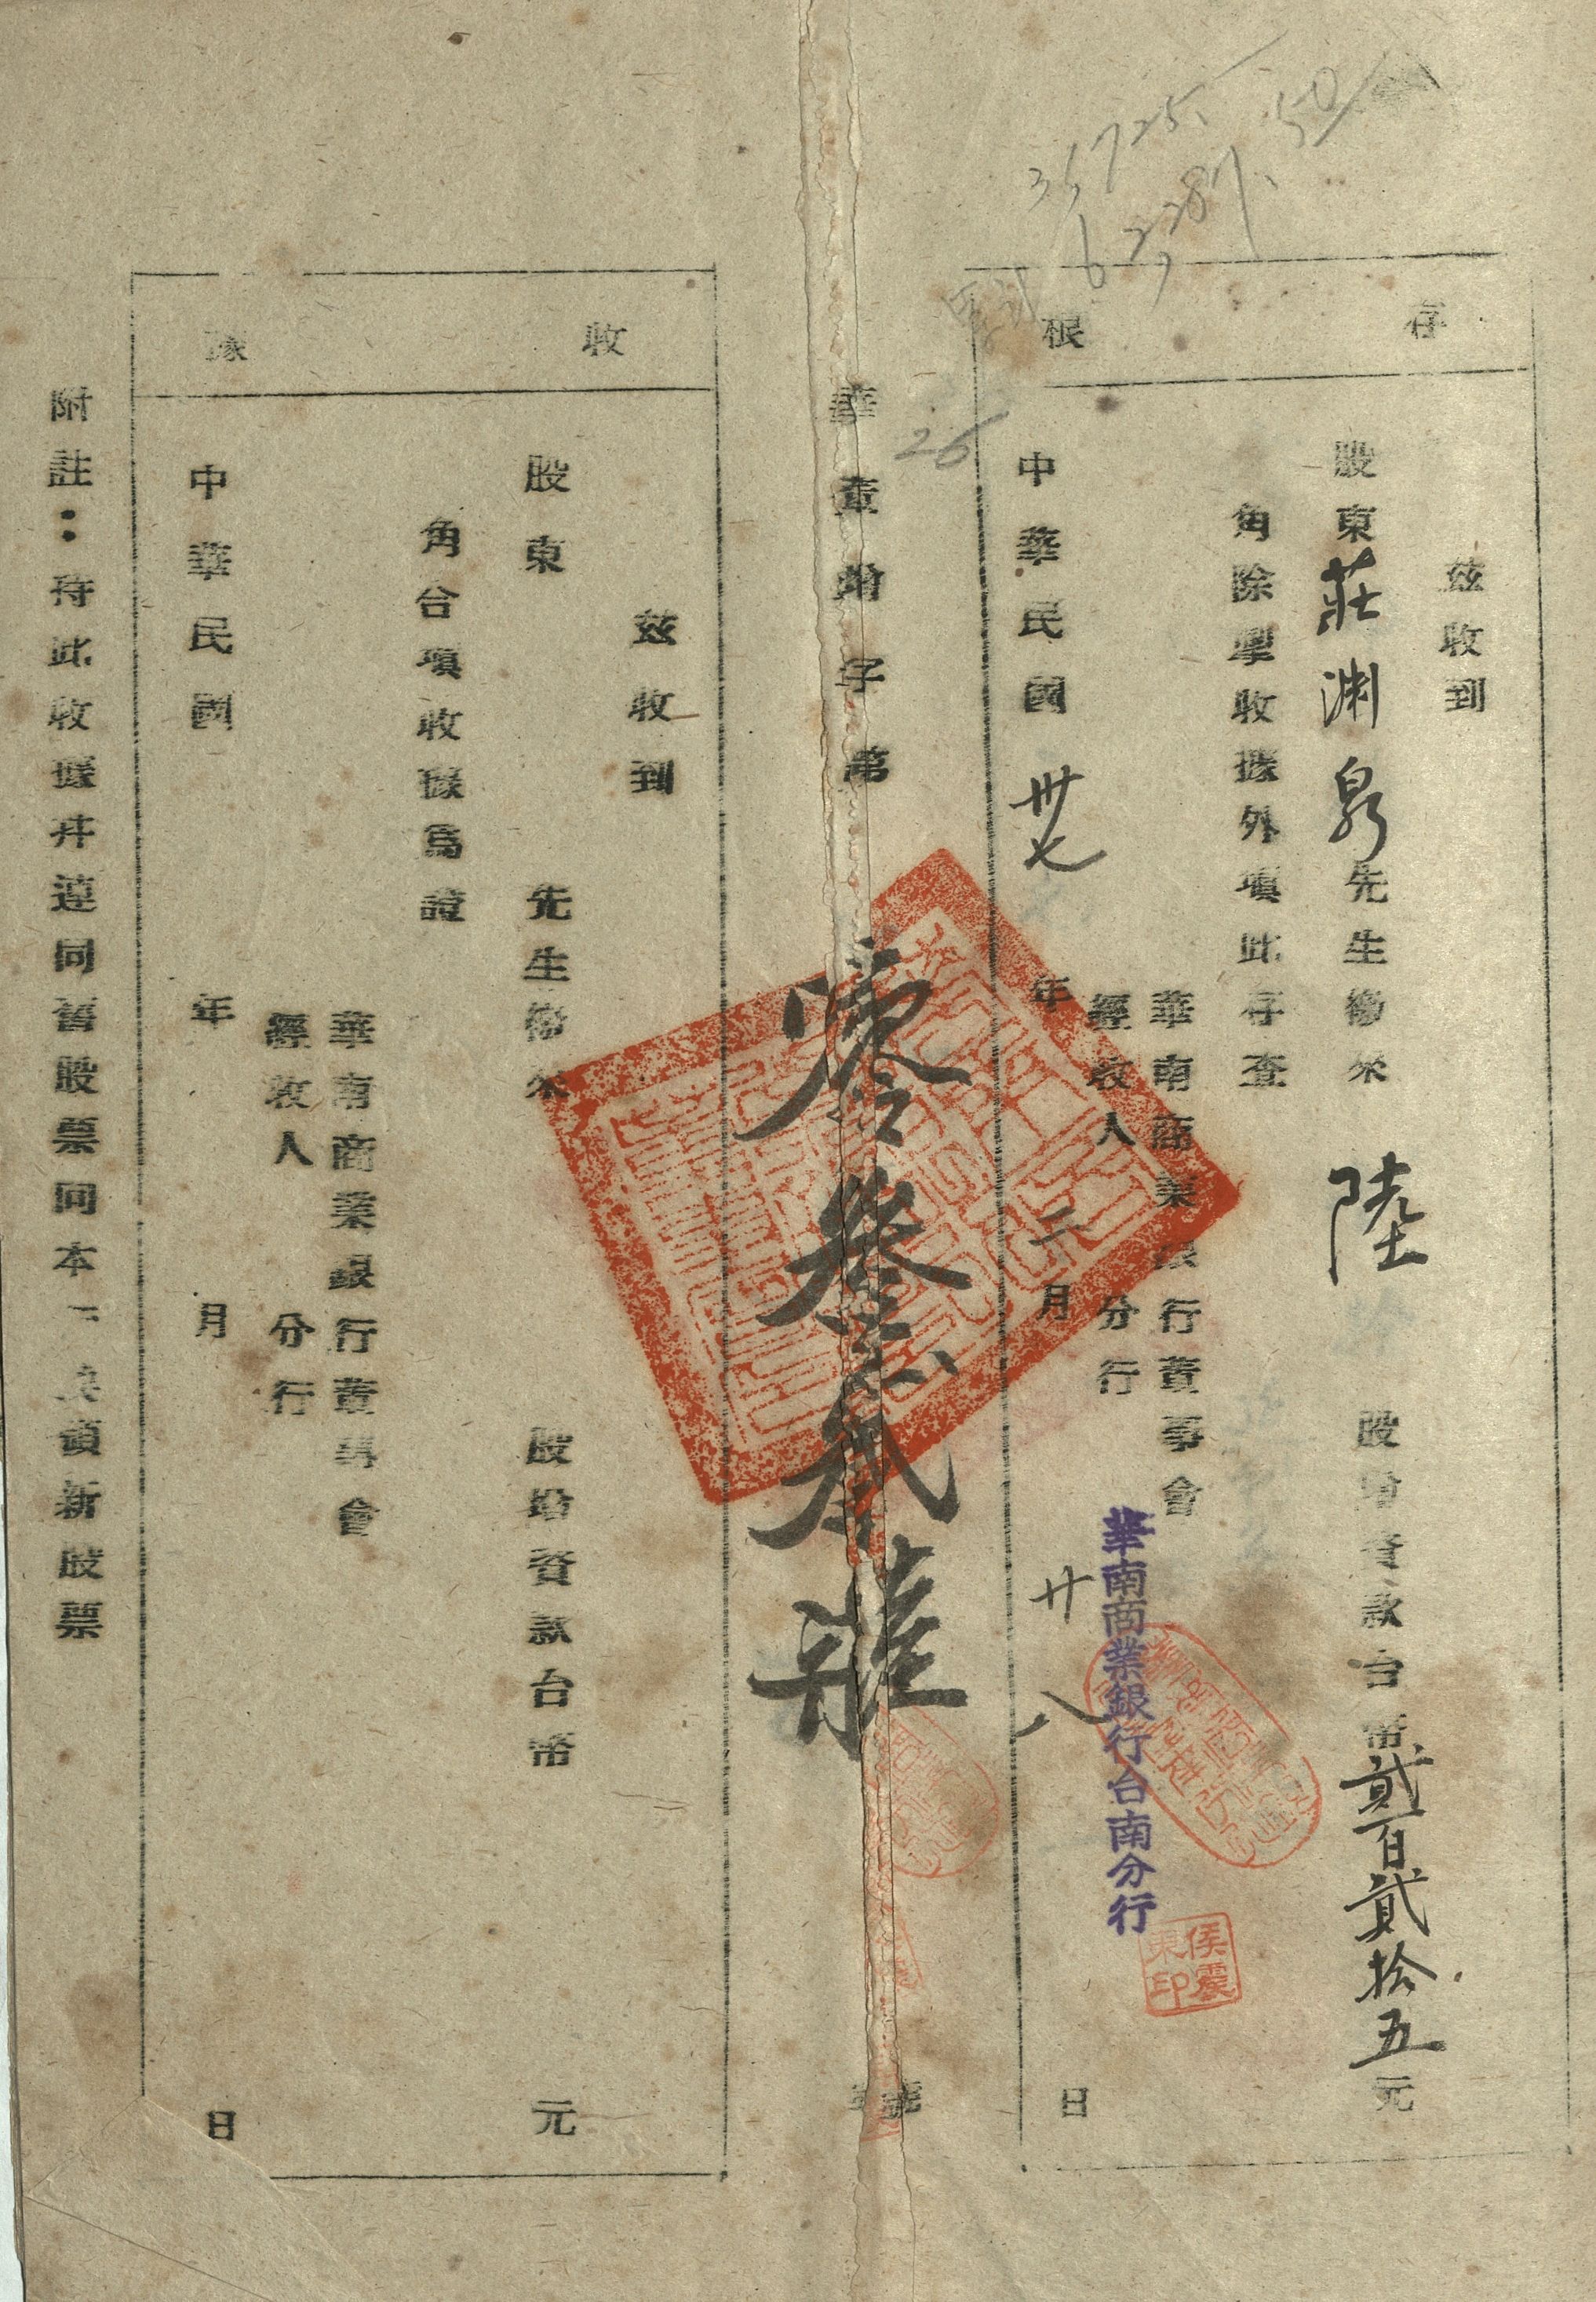 35725.
62287.50
存根
茲收到
股東莊渊泉先生繳來陸股增資款台幣貳百貳拾五元
角除掣收據外項此存查
華南商業銀行董事會
經收人分行
華南商業銀行台南分行
侯震東印
中華民國卅七年二月廿八日
26
華董增字第零叁貳號
收據
茲收到
股東先生繳來股增資款台幣元
角合項收據爲證
華南商業銀行董事會
經收人分行
中華民國年月日
附註：持此收據幷連同舊股票向本換領新股票